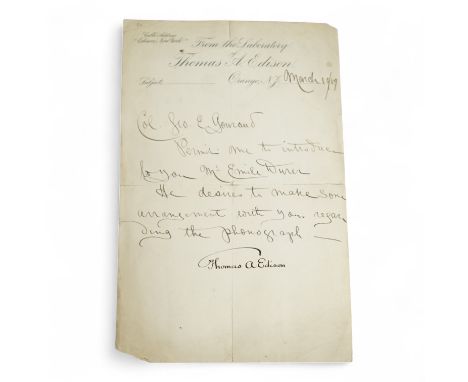 Cable Address
"Edison, New York"
From the Laboratory
of
Thomas A. Edison
Orange, N.J. March 89
Subject
Col. Geo E. Gouraud
Permit me to introduce
to you Mr Emile Durer
He desires to make some
arrangement with you regar
ding the phonograph —
Thomas A Edison